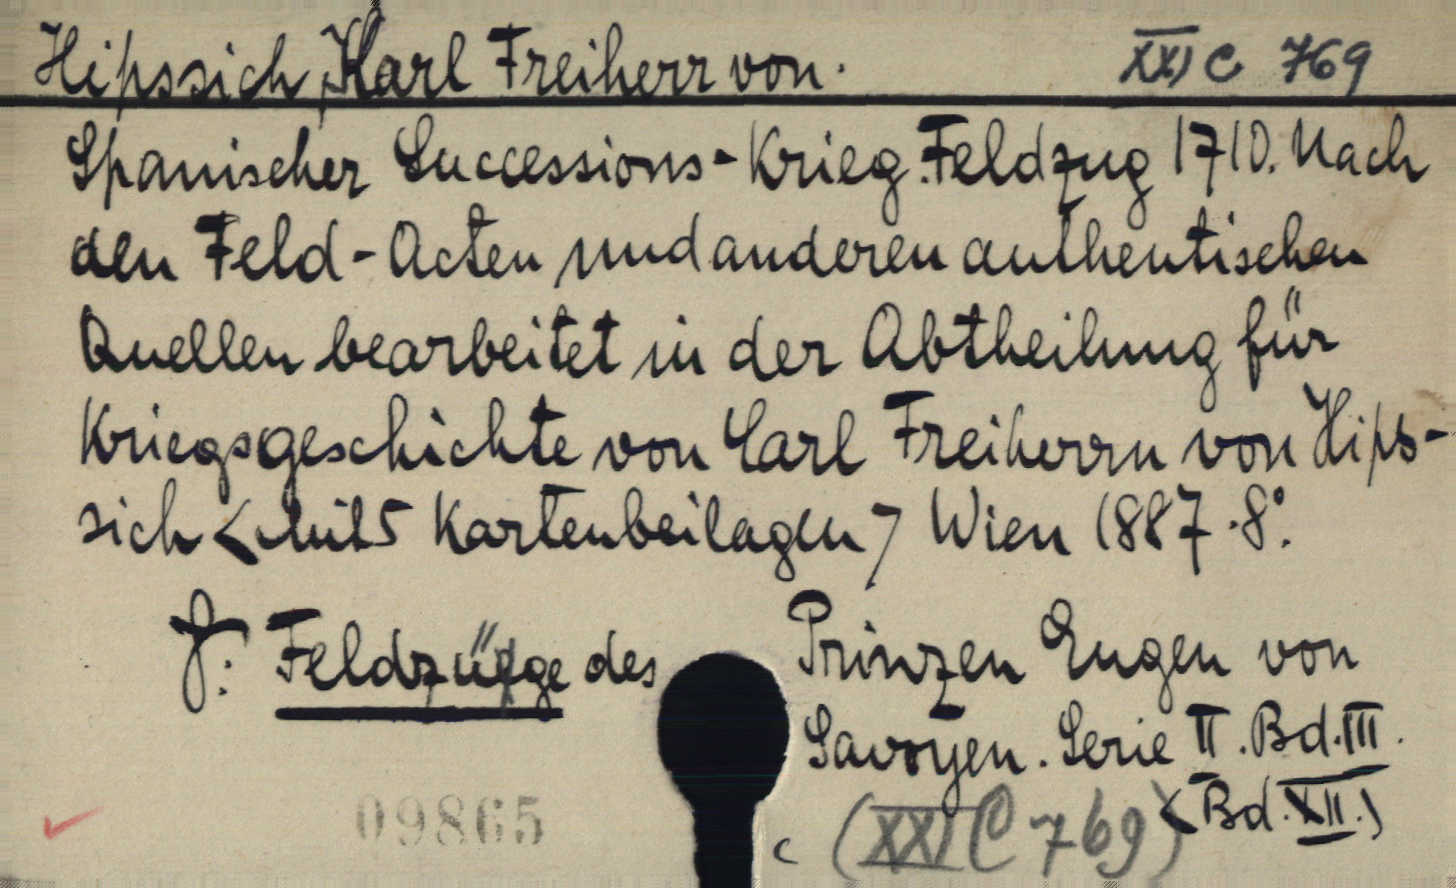 Hipssich, Karl Freiherr von. XXI C 769
Spanischer Successions-Krieg. Feldzug 1710. Nach
den Feld-Acten und anderen authentischen
Quellen bearbeitet in der Abtheilung für
Kriegsgeschichte von Carl Freiherrn von Hips-
sich <mit 5 Kartenbeilagen> Wien 1887. 8°.
J: Feldzüge des Prinzen Eugen von
Savoyen. Serie II. Bd. III.
<Bd. XII.>
09865
c (XXI C 769)